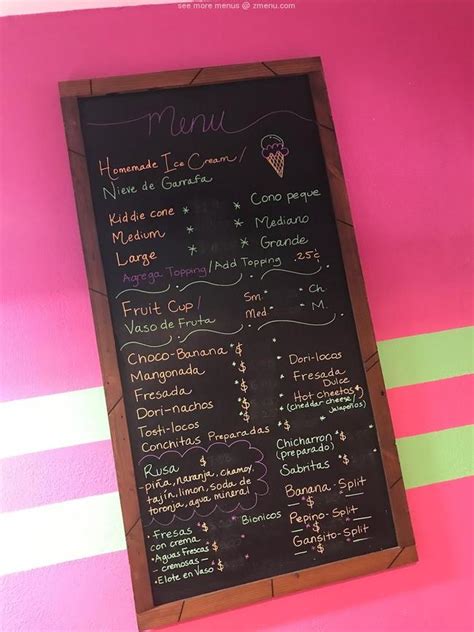 see more menus @ zmenu.com
Menu
Homemade Ice Cream /
Nieve de Garrafa
Kiddie cone * * Cono peque
Medium * * Mediano
Large * * Grande
Agrega Topping/Add Topping .25¢
Fruit Cup / Sm. Ch
Vaso de Fruta Med. M.
Choco-Banana *$
Mangonada *$
Fresada *$
Dori-nachos *$
Tosti-locos *$
Conchitas Preparadas *$
Dori-locos
Fresada
Dulce
Hot cheetos
*(cheddar cheese/
Jalapeños)
Chicharron *$
(preparado)
Sabritas *$
Rusa $
- piña, naranja, chamoy,
tajín, limon, soda de
toronja, agua mineral
• Fresas *$
con crema
• Aguas Frescas *$
- cremosas -
• Elote en Vaso *$
Bionicos *$
Banana-Split
*$
Pepino-Split
*$
Gansito-Split
*$